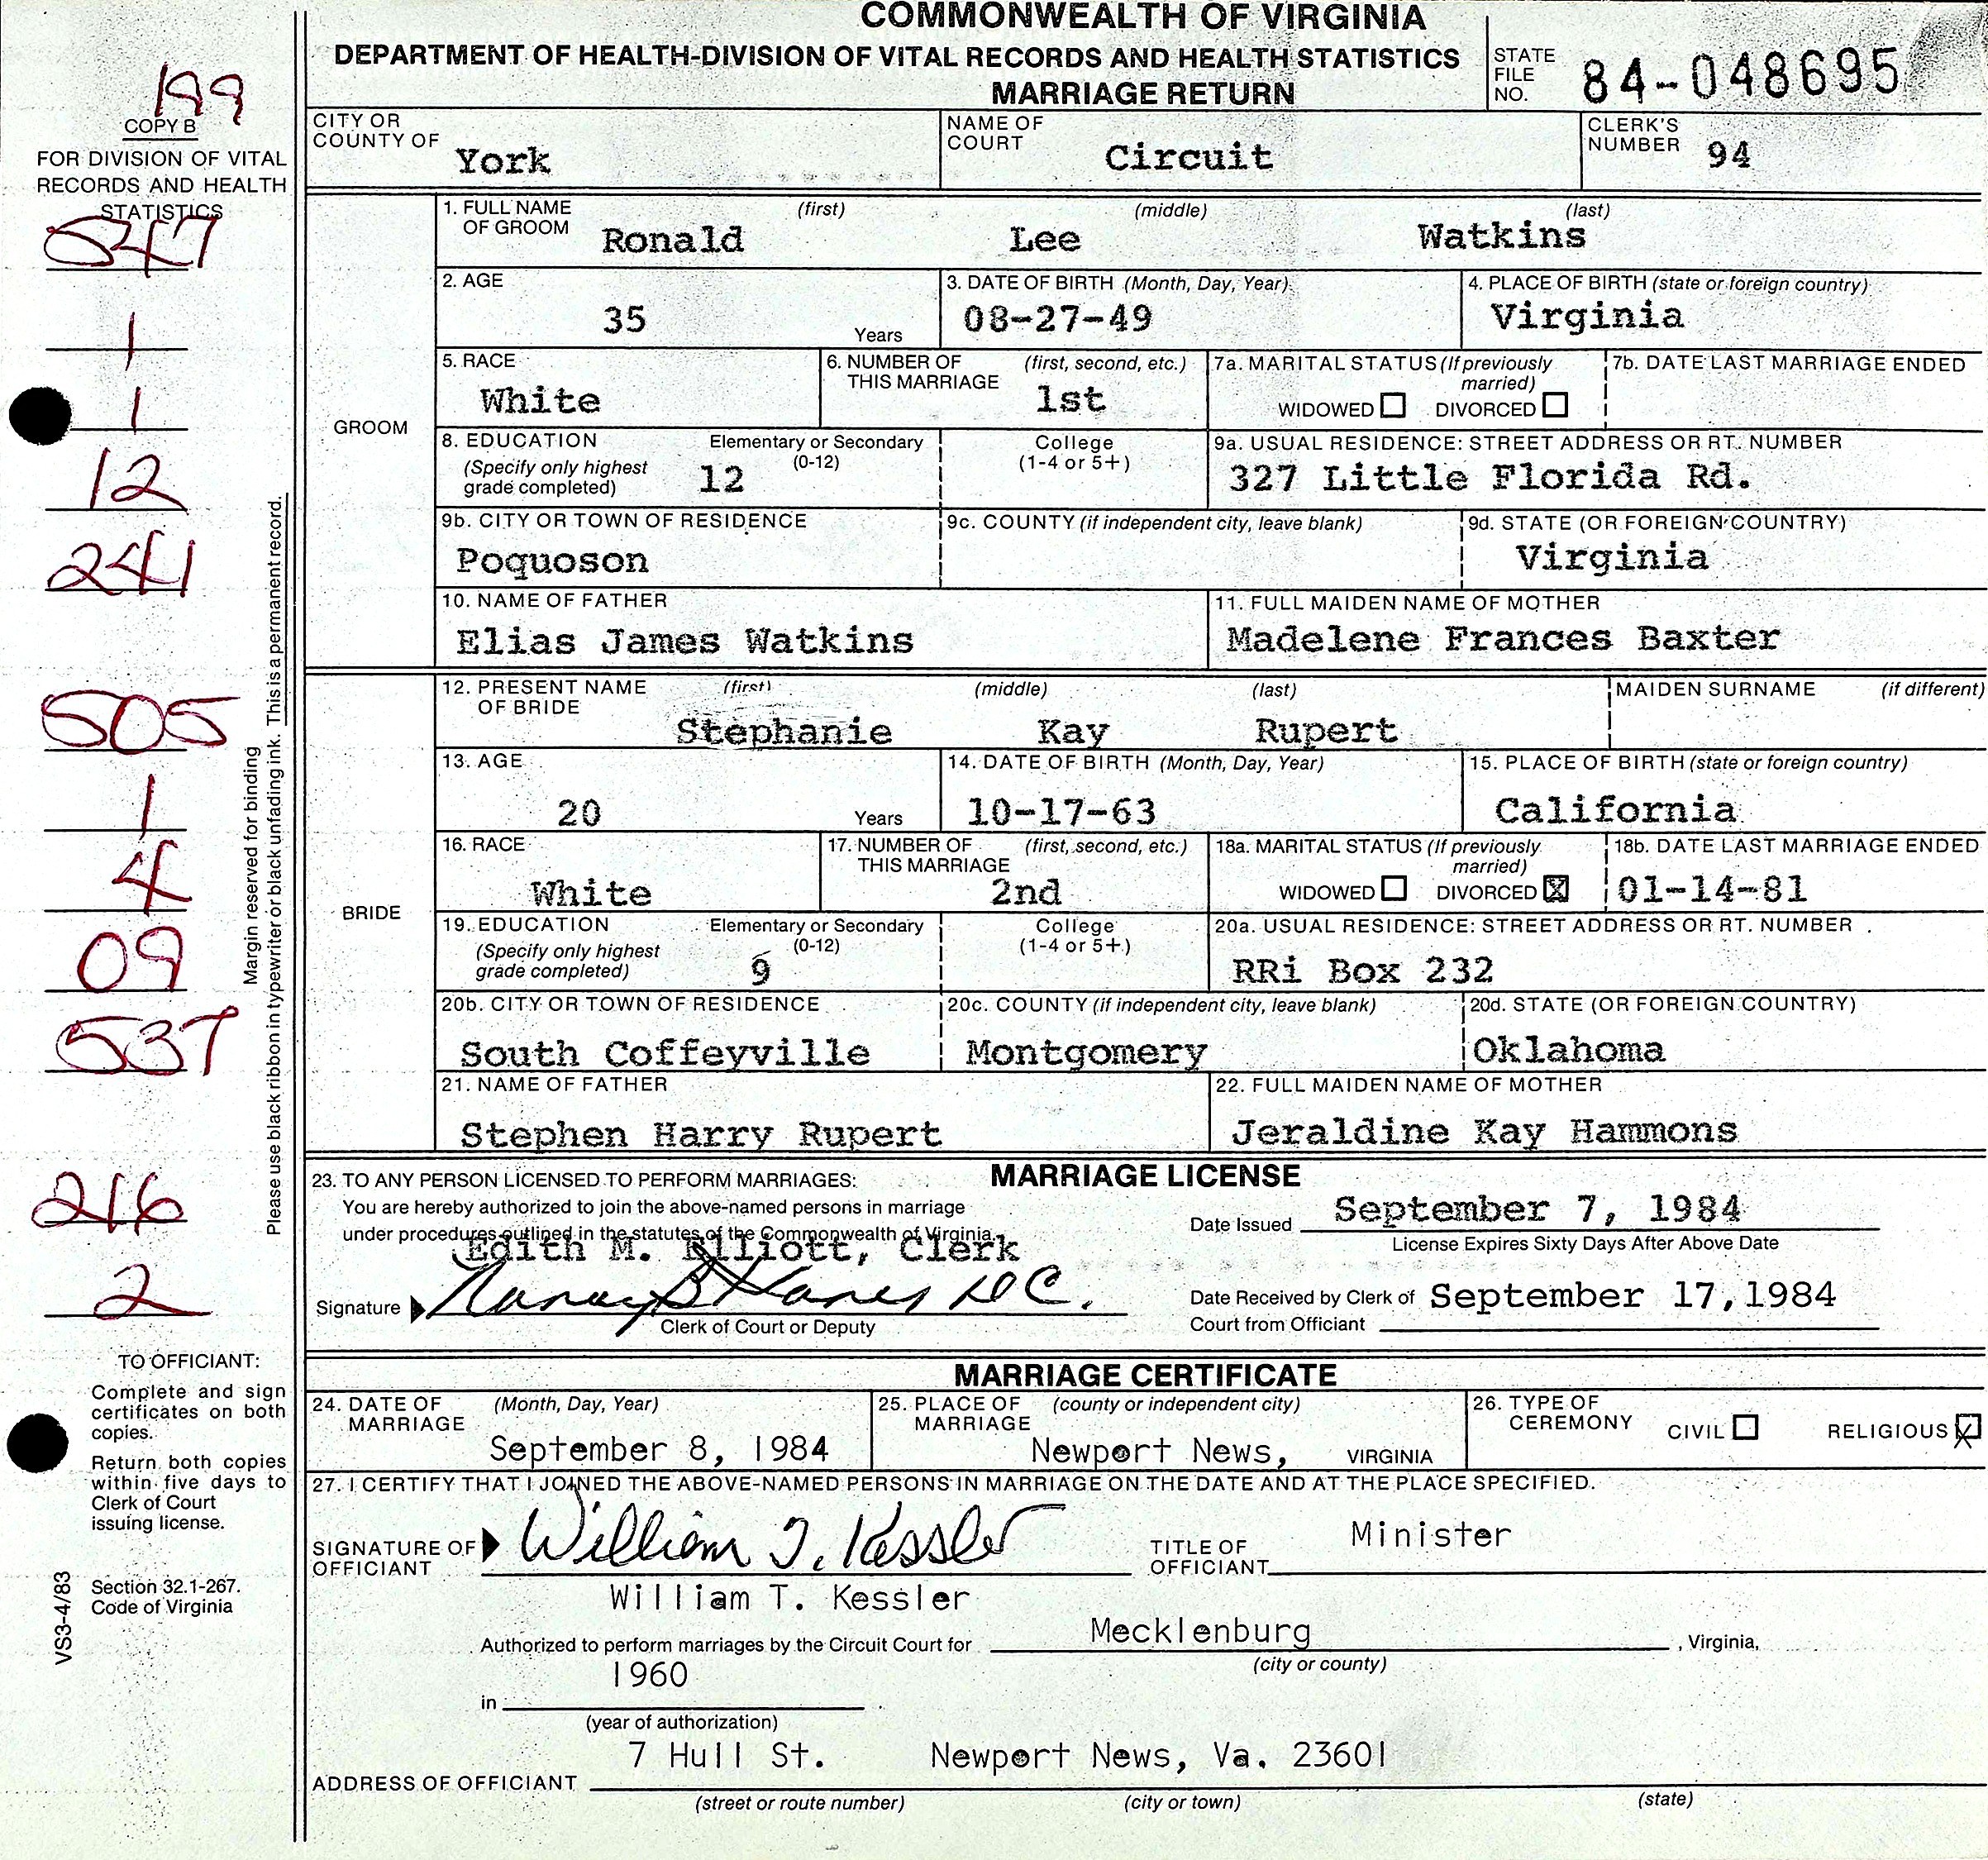 COMMONWEALTH OF VIRGINIA
DEPARTMENT OF HEALTH-DIVISION OF VITAL RECORDS AND HEALTH STATISTICS
MARRIAGE RETURN
STATE FILE NO. 84-048695
199
COPY B
FOR DIVISION OF VITAL
RECORDS AND HEALTH
STATISTICS
547
1
1
12
241
505
1
4
09
537
216
2
Margin reserved for binding
Please use black ribbon in typewriter or black unfading ink. This is a permanent record.
TO OFFICIANT:
Complete and sign
certificates on both
copies.
Return both copies
within five days to
Clerk of Court
issuing license.
Section 32.1-267.
Code of Virginia
VS3-4/83
CITY OR COUNTY OF York
NAME OF COURT Circuit
CLERK'S NUMBER 94
GROOM
1. FULL NAME OF GROOM (first) Ronald (middle) Lee (last) Watkins
2. AGE 35 Years
3. DATE OF BIRTH (Month, Day, Year) 08-27-49
4. PLACE OF BIRTH (state or foreign country) Virginia
5. RACE White
6. NUMBER OF THIS MARRIAGE (first, second, etc.) 1st
7a. MARITAL STATUS (If previously married) WIDOWED DIVORCED
7b. DATE LAST MARRIAGE ENDED
8. EDUCATION (Specify only highest grade completed) Elementary or Secondary (0-12) 12
College (1-4 or 5+)
9a. USUAL RESIDENCE: STREET ADDRESS OR RT. NUMBER 327 Little Florida Rd.
9b. CITY OR TOWN OF RESIDENCE Poquoson
9c. COUNTY (if independent city, leave blank)
9d. STATE (OR FOREIGN COUNTRY) Virginia
10. NAME OF FATHER Elias James Watkins
11. FULL MAIDEN NAME OF MOTHER Madelene Frances Baxter
BRIDE
12. PRESENT NAME OF BRIDE (first) Stephanie (middle) Kay (last) Rupert
MAIDEN SURNAME (if different)
13. AGE 20 Years
14. DATE OF BIRTH (Month, Day, Year) 10-17-63
15. PLACE OF BIRTH (state or foreign country) California
16. RACE White
17. NUMBER OF THIS MARRIAGE (first, second, etc.) 2nd
18a. MARITAL STATUS (If previously married) WIDOWED DIVORCED X
18b. DATE LAST MARRIAGE ENDED 01-14-81
19. EDUCATION (Specify only highest grade completed) Elementary or Secondary (0-12) 9
College (1-4 or 5+)
20a. USUAL RESIDENCE: STREET ADDRESS OR RT. NUMBER RRi Box 232
20b. CITY OR TOWN OF RESIDENCE South Coffeyville
20c. COUNTY (if independent city, leave blank) Montgomery
20d. STATE (OR FOREIGN COUNTRY) Oklahoma
21. NAME OF FATHER Stephen Harry Rupert
22. FULL MAIDEN NAME OF MOTHER Jeraldine Kay Hammons
MARRIAGE LICENSE
23. TO ANY PERSON LICENSED TO PERFORM MARRIAGES:
You are hereby authorized to join the above-named persons in marriage
under procedures outlined in the statutes of the Commonwealth of Virginia.
Edith M. Elliott, Clerk
Signature Nancy B D.C.
Clerk of Court or Deputy
Date Issued September 7, 1984
License Expires Sixty Days After Above Date
Date Received by Clerk of Court from Officiant September 17,1984
MARRIAGE CERTIFICATE
24. DATE OF MARRIAGE (Month, Day, Year) September 8, 1984
25. PLACE OF MARRIAGE (county or independent city) Newport News, VIRGINIA
26. TYPE OF CEREMONY CIVIL RELIGIOUS X
27. I CERTIFY THAT I JOINED THE ABOVE-NAMED PERSONS IN MARRIAGE ON THE DATE AND AT THE PLACE SPECIFIED.
SIGNATURE OF OFFICIANT William T. Kessler
TITLE OF OFFICIANT Minister
William T. Kessler
Authorized to perform marriages by the Circuit Court for Mecklenburg , Virginia,
(city or county)
in 1960
(year of authorization)
ADDRESS OF OFFICIANT 7 Hull St. Newport News, Va. 23601
(street or route number) (city or town) (state)